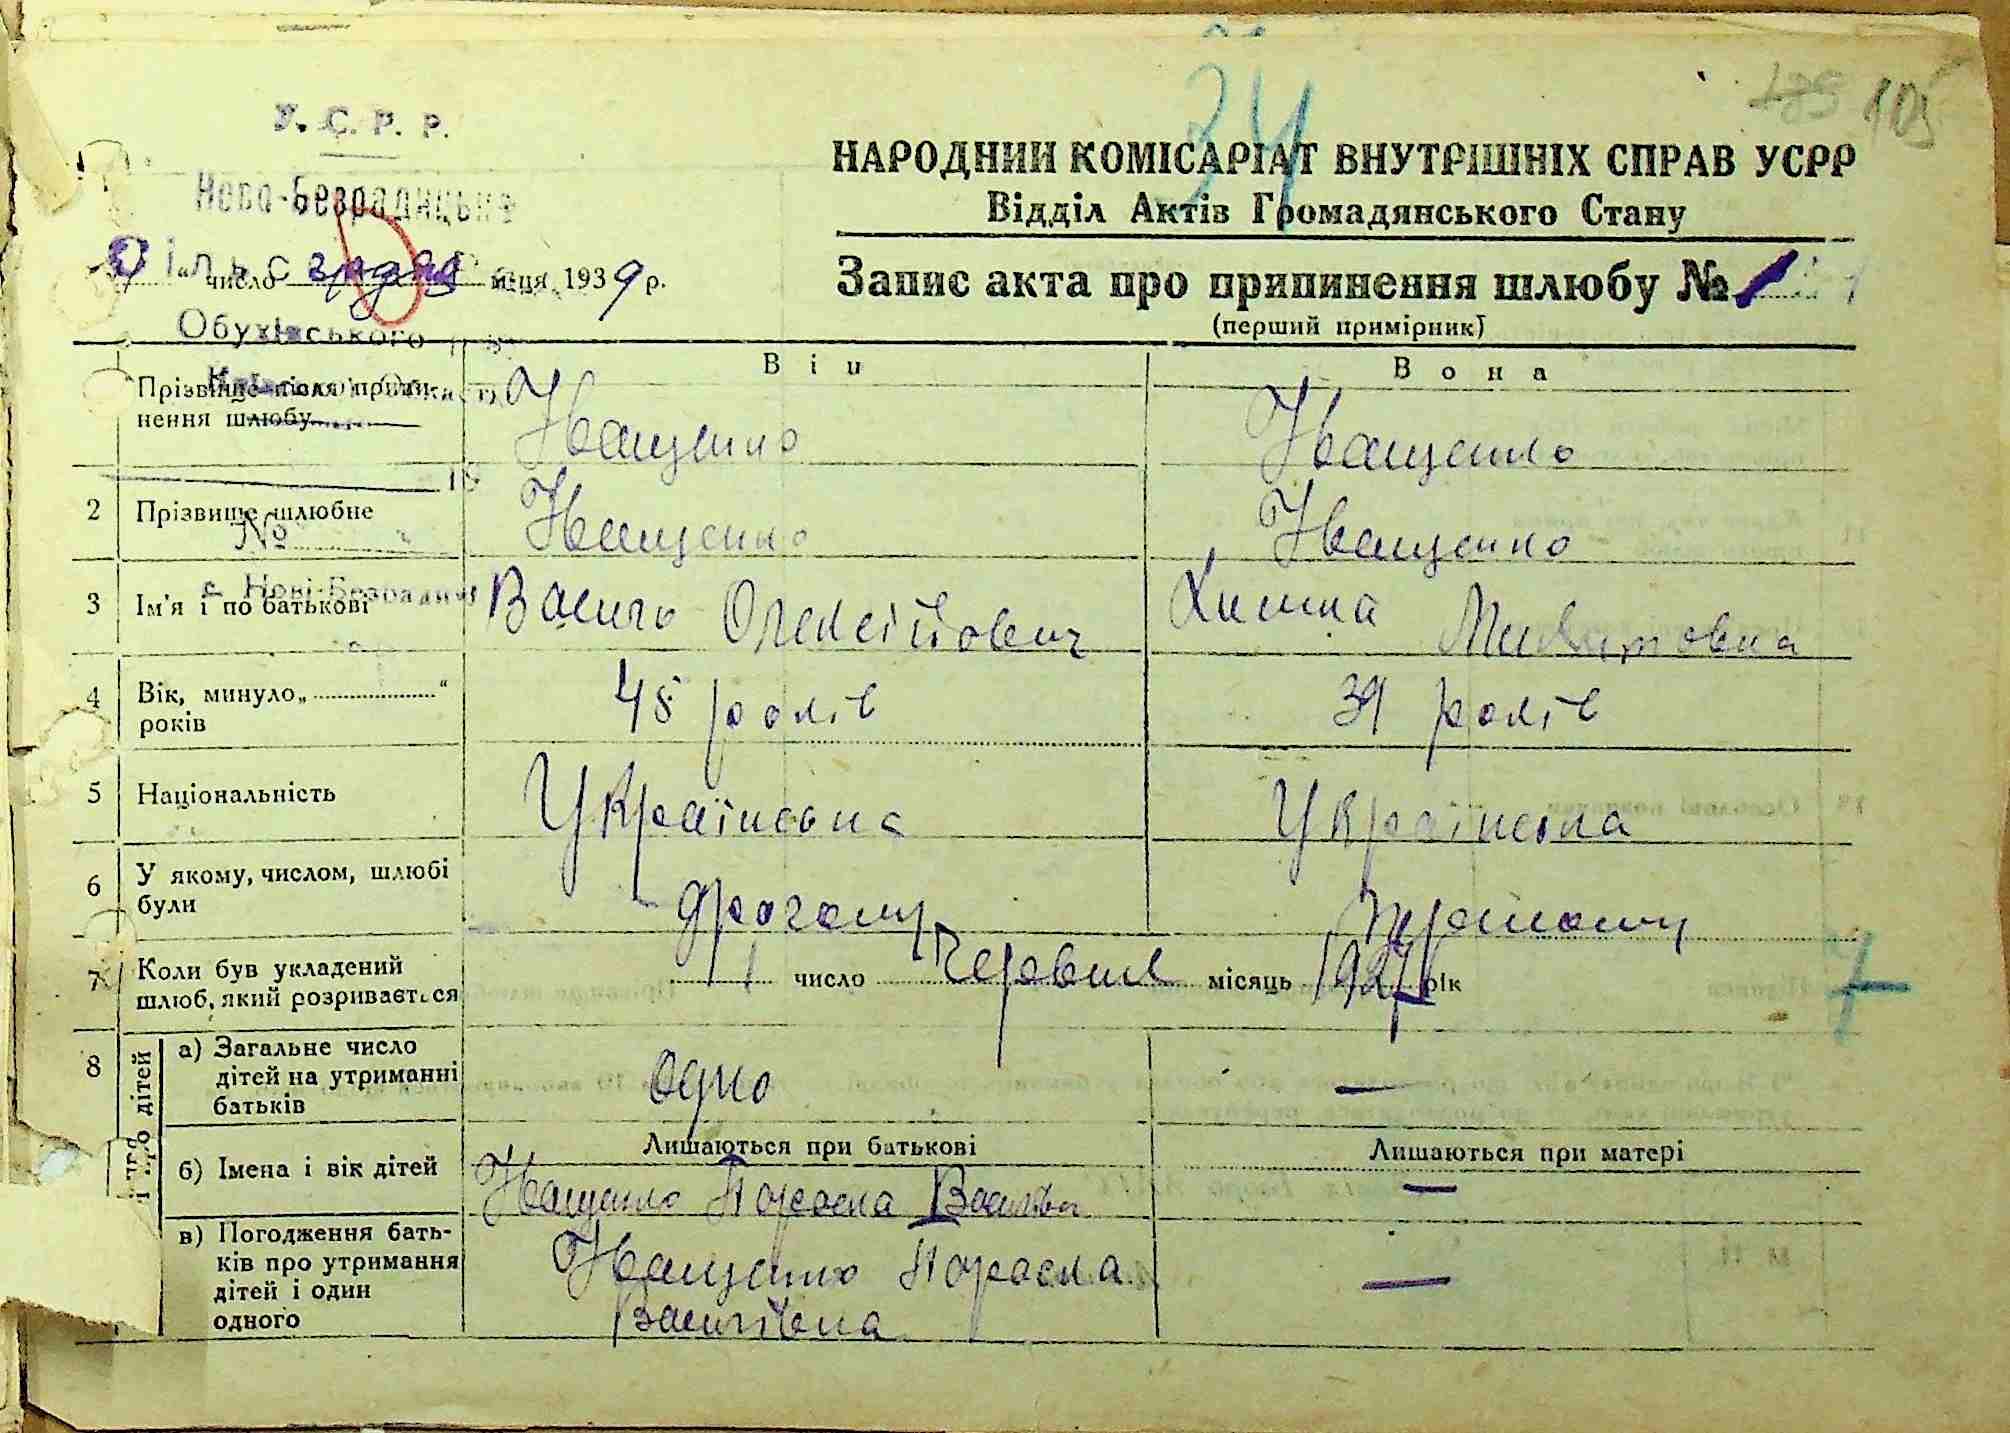 У. С. Р. Р.
Ново-Безрадицька
Сільс
Обухівського
№
с. Нові-Безрадичі
34
105
НАРОДНИЙ КОМІСАРІАТ ВНУТРІШНІХ СПРАВ УСРР
Відділ Актів Громадянського Стану
число грудня м-ця 1939 р.
Запис акта про припинення шлюбу № 1
(перший примірник)
Він Вона
Прізвище після припи-
нення шлюбу
Іващенко Іващенко
2 Прізвище шлюбне Іващенко Іващенко
3 Ім'я і по батькові Василь Олексійович Микитовна
4 Вік, минуло „ “
років
45 років 39 років
5 Національність Українська Українська
6 У якому, числом, шлюбі
були
другому першому
7 Коли був укладений
шлюб, який розривається
1 число червня місяць 1927 рік
7
8 про дітей
а) Загальне число
дітей на утриманні
батьків
одно —
Лишаються при батькові Лишаються при матері
б) Імена і вік дітей Іващенко Параска Василівна —
в) Погодження бать-
ків про утримання
дітей і один
одного
Іващенко Параска
Василівна
—